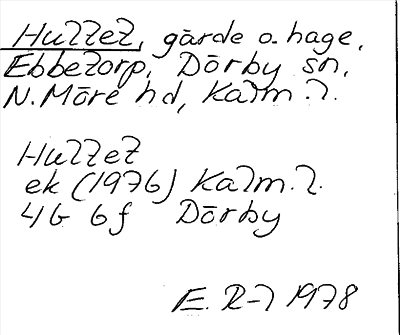 Hultet, gärde o. hage,
Ebbetorp, Dörby sn,
N. Möre hd, Kalm. l.
Hultet
ek (1976) Kalm. l.
4G 6f Dörby
E. 1978